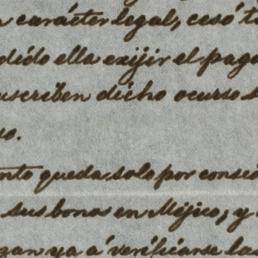 carácter legal, cesó
dido ella exijir el pago
uscriben dicho ocurso
so.
nto queda solo por conse
sus bonos en Méjico; y
zan ya á verificarse las